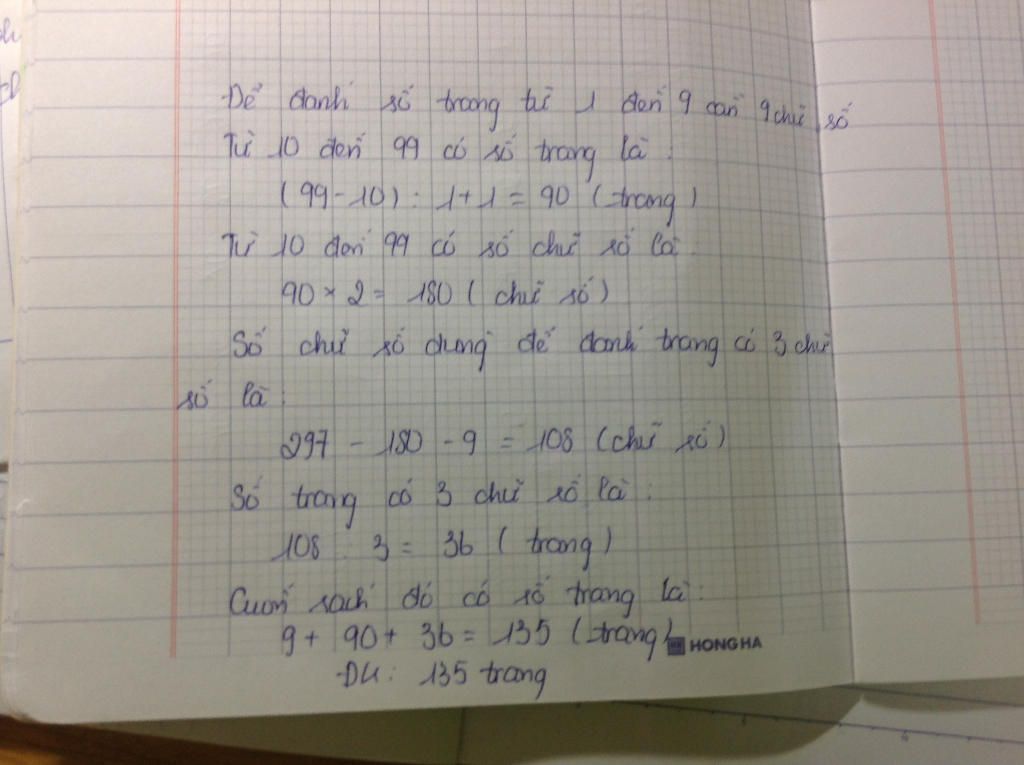 Để đanh số trang từ 1 đến 9 cần 9 chữ số
Từ 10 đến 99 có số trang là :
(99 - 10) : 1 + 1 = 90 (trang)
Từ 10 đến 99 có số chữ số là :
90 × 2 = 180 ( chữ số )
Số chữ số dùng để đanh trang có 3 chữ
số là :
297 - 180 - 9 = 108 (chữ số)
Số trang có 3 chữ số là :
108 : 3 = 36 ( trang )
Cuốn sách đó có số trang là :
9 + 90 + 36 = 135 (trang)
HONG HA
ĐS : 135 trang